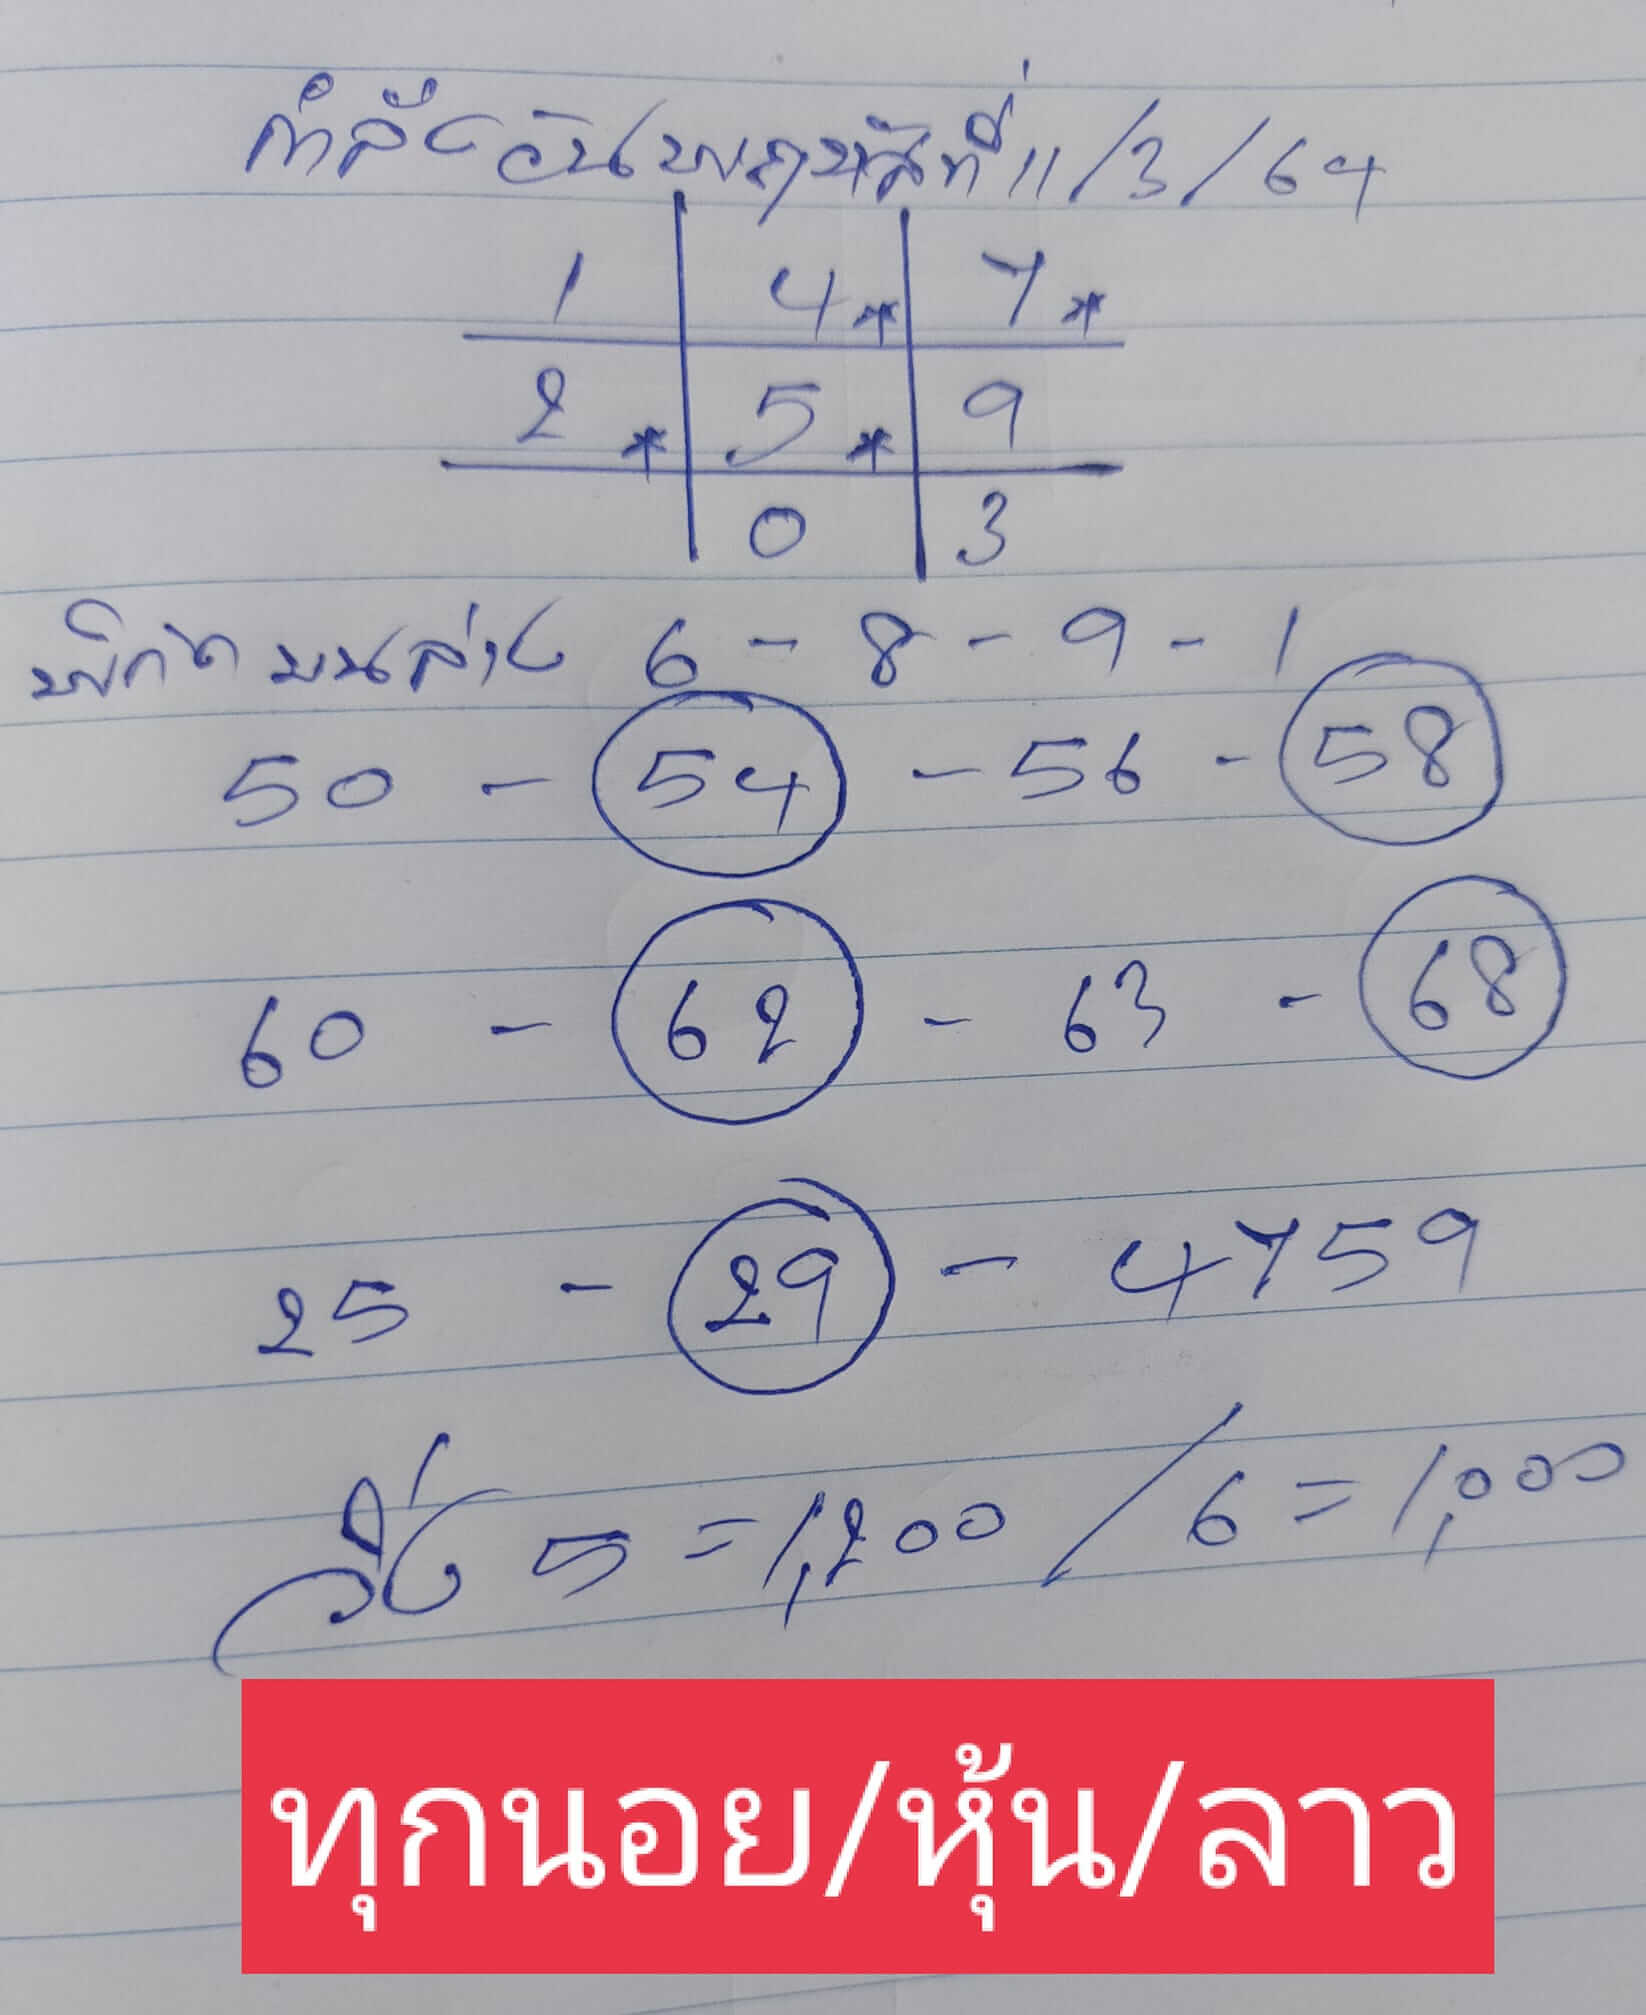 กำลังวันพฤหัสที่ 11/3/64
1 4* 7*
2* 5* 9
0 3
พิกัดบนล่าง 6 - 8 - 9 - 1
50 - 54 - 56 - 58
60 - 62 - 63 - 68
25 - 29 - 4759
วิ่ง 5 = 1,200 / 6 = 1,000
ทุกนอย/หุ้น/ลาว